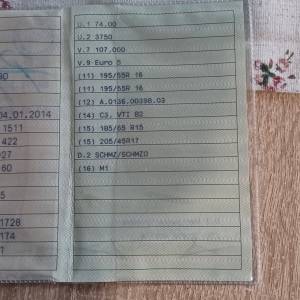 U.1 74.00
U.2 3750
V.7 107.000
V.9 Euro 5
(11) 195/55R 16
(11) 195/55R 16
(12) A.0136.00398.03
(14) C3, VTI 82
(15) 185/65 R15
(15) 205/45R17
D.2 SCHMZ/SCHMZ0
(16) M1
04.01.2014
1511
422
027
60
5
1728
174